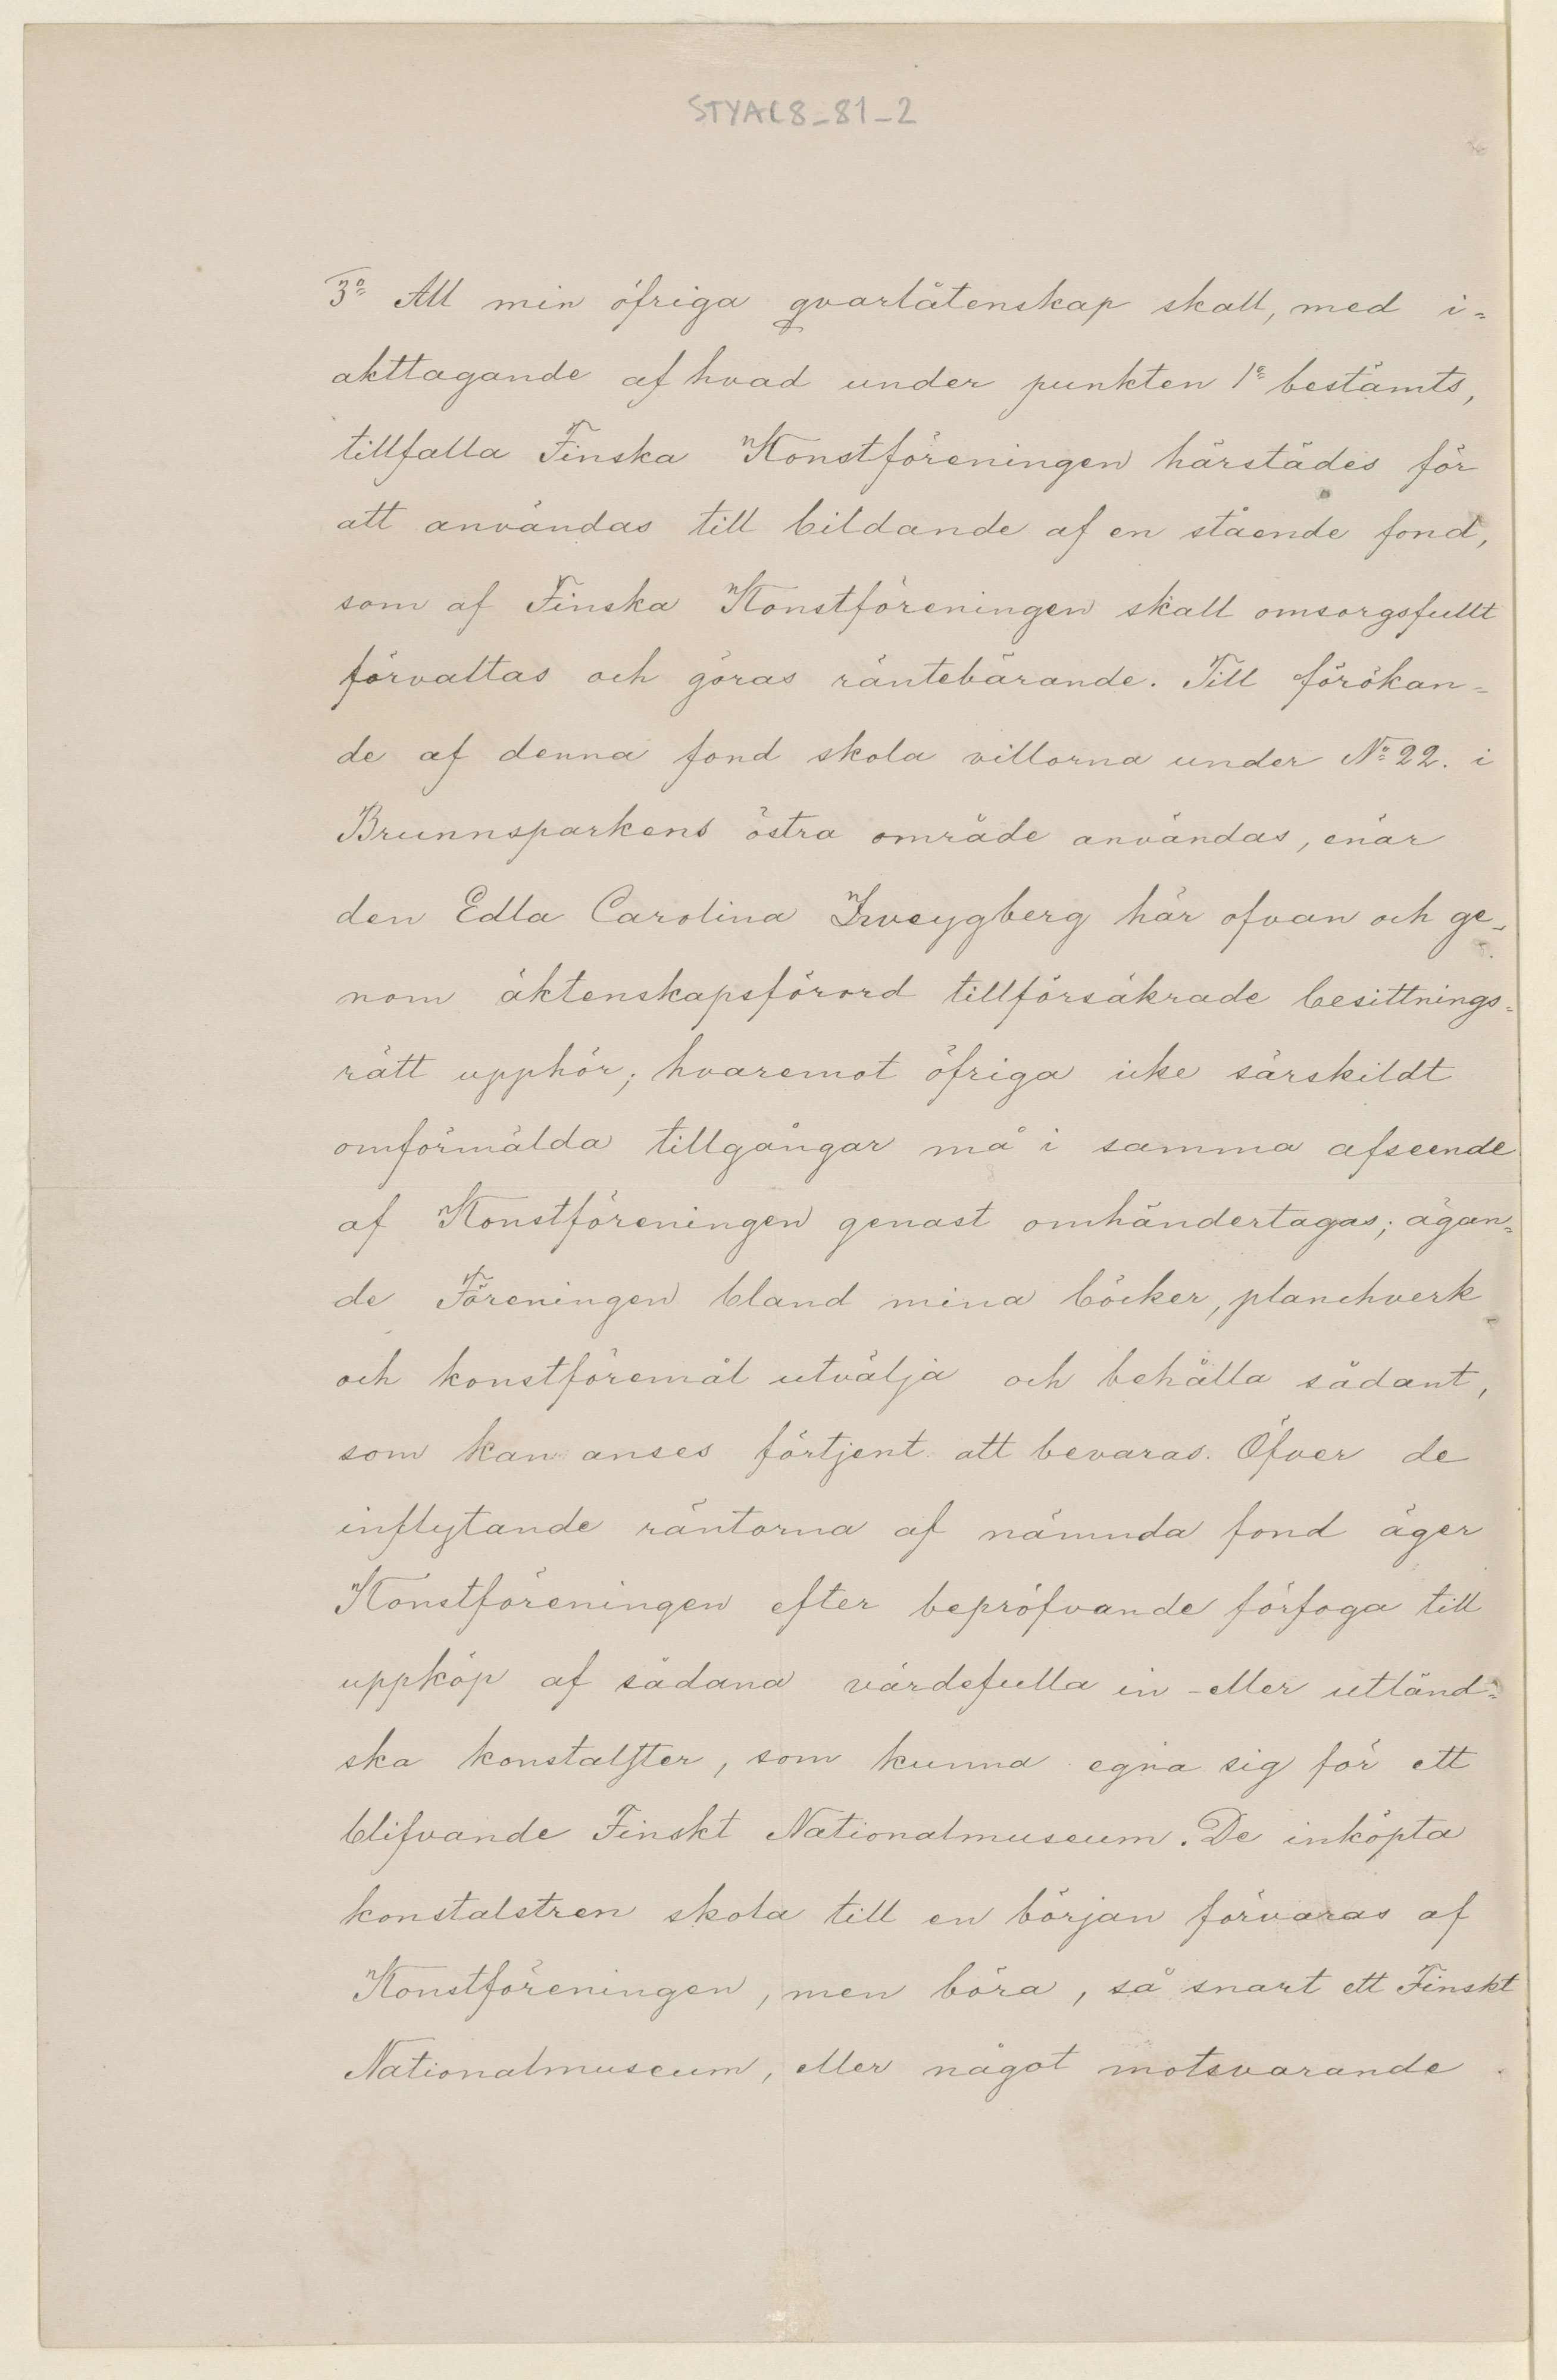 STYAL8_81_2
3o All min öfriga qvarlåtenskap skall, med i=
akttagande af hvad under punkten 1o bestämts,
tillfalla Finska Konstföreningen härstädes för
att användas till bildande af en stående fond,
som af Finska Konstföreningen skall omsorgsfullt
förvaltas och göras räntebärande. Till förökan=
de af denna fond skola villorna under No 22. i
Brunnsparkens östra område användas, enär
den Edla Carolina Zweygberg här ofvan och ge-
nom äktenskapsförord tillförsäkrade besittnings=
rätt upphör; hvaremot öfriga icke särskildt
omförmälda tillgångar må i samma afseende
af Konstföreningen genast omhändertagas; ägan=
de Föreningen bland mina böcker, planchverk
och konstföremål utvälja och behålla sådant,
som kan anses förtjent att bevaras. Öfver de
inflytande räntorna af nämnda fond äger
Konstföreningen efter bepröfvande förfoga till
uppköp af sådana värdefulla in- eller utländ=
ska konstalster, som kunna egna sig för ett
blifvande Finskt Nationalmuseum. De inköpta
konstalstren skola till en början förvaras af
Konstföreningen, men böra, så snart ett Finskt
Nationalmuseum, eller något motsvarande